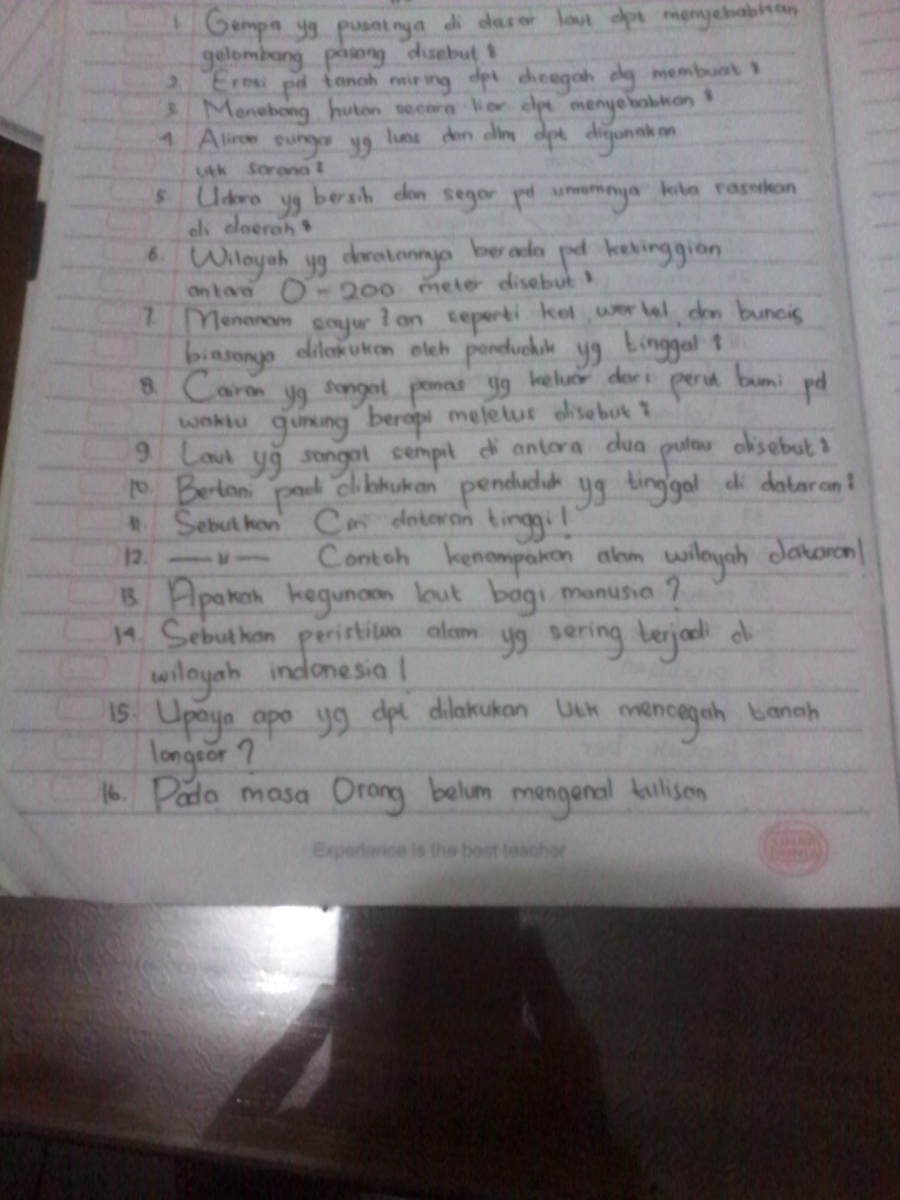 1. Gempa yg pusatnya di dasar laut dpt menyebabkan
gelombang pasang disebut :
2. Erosi pd tanah miring dpt dicegah dg membuat :
3. Menebang hutan secara liar dpt menyebabkan :
4. Aliran sungai yg luas dan dlm dpt digunakan
utk sarana :
5. Udara yg bersih dan segar pd umumnya kita rasakan
di daerah :
6. Wilayah yg daratannya berada pd ketinggian
antara 0 - 200 meter disebut :
7. Menanam sayur2an seperti kol, wortel, dan buncis
biasanya dilakukan oleh penduduk yg tinggal :
8. Cairan yg sangat panas yg keluar dari perut bumi pd
waktu gunung berapi meletus disebut :
9. Laut yg sangat sempit di antara dua pulau disebut :
10. Bertani padi dilakukan penduduk yg tinggal di dataran :
11. Sebutkan Ciri dataran tinggi!
12. — " — Contoh kenampakan alam wilayah dataran!
13. Apakah kegunaan laut bagi manusia ?
14. Sebutkan peristiwa alam yg sering terjadi di
wilayah indonesia!
15. Upaya apa yg dpt dilakukan Utk mencegah tanah
longsor ?
16. Pada masa Orang belum mengenal tulisan
Experience is the best teacher
SINAR
DUNIA